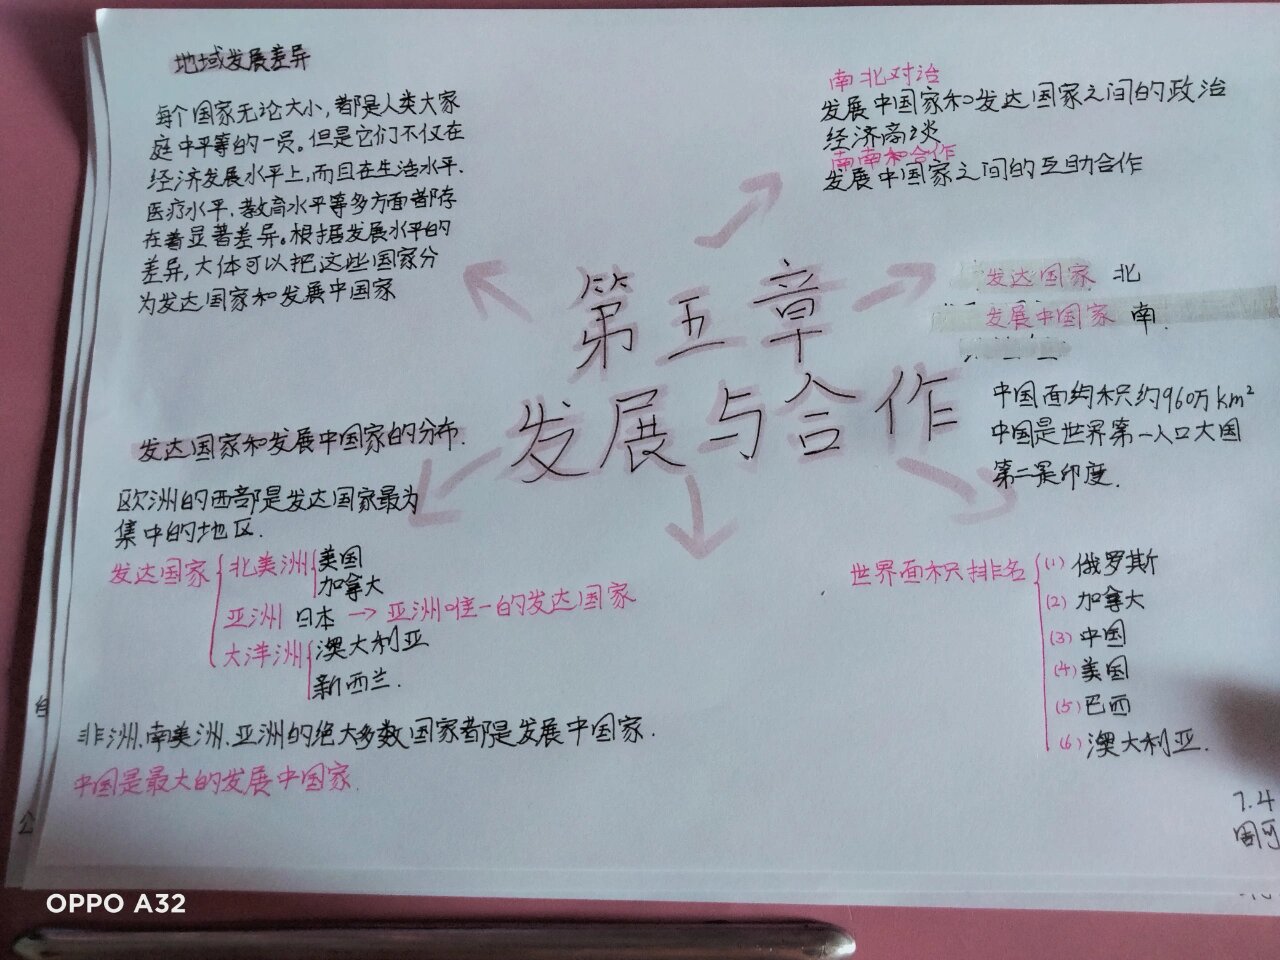 地域发展差异
每个国家无论大小,都是人类大家
庭中平等的一员。但是它们不仅在
经济发展水平上,而且在生活水平.
医疗水平、教育水平等多方面都存
在着显著差异。根据发展水平的
差异,大体可以把这些国家分
为发达国家和发展中国家
南北对话
发展中国家和发达国家之间的政治
经济商谈
南南和合作
发展中国家之间的互助合作
发达国家 北
发展中国家 南.
第五章
发展与合作
中国面积约960万km²
中国是世界第一人口大国
第二是印度.
发达国家和发展中国家的分布.
欧洲的西部是发达国家最为
集中的地区.
发达国家
北美洲 美国
加拿大
亚洲 日本 → 亚洲唯一的发达国家
大洋洲 澳大利亚
新西兰.
非洲、南美洲、亚洲的绝大多数国家都是发展中国家.
中国是最大的发展中国家.
世界面积排名
(1) 俄罗斯
(2) 加拿大
(3) 中国
(4) 美国
(5) 巴西
(6) 澳大利亚.
7.4
OPPO A32